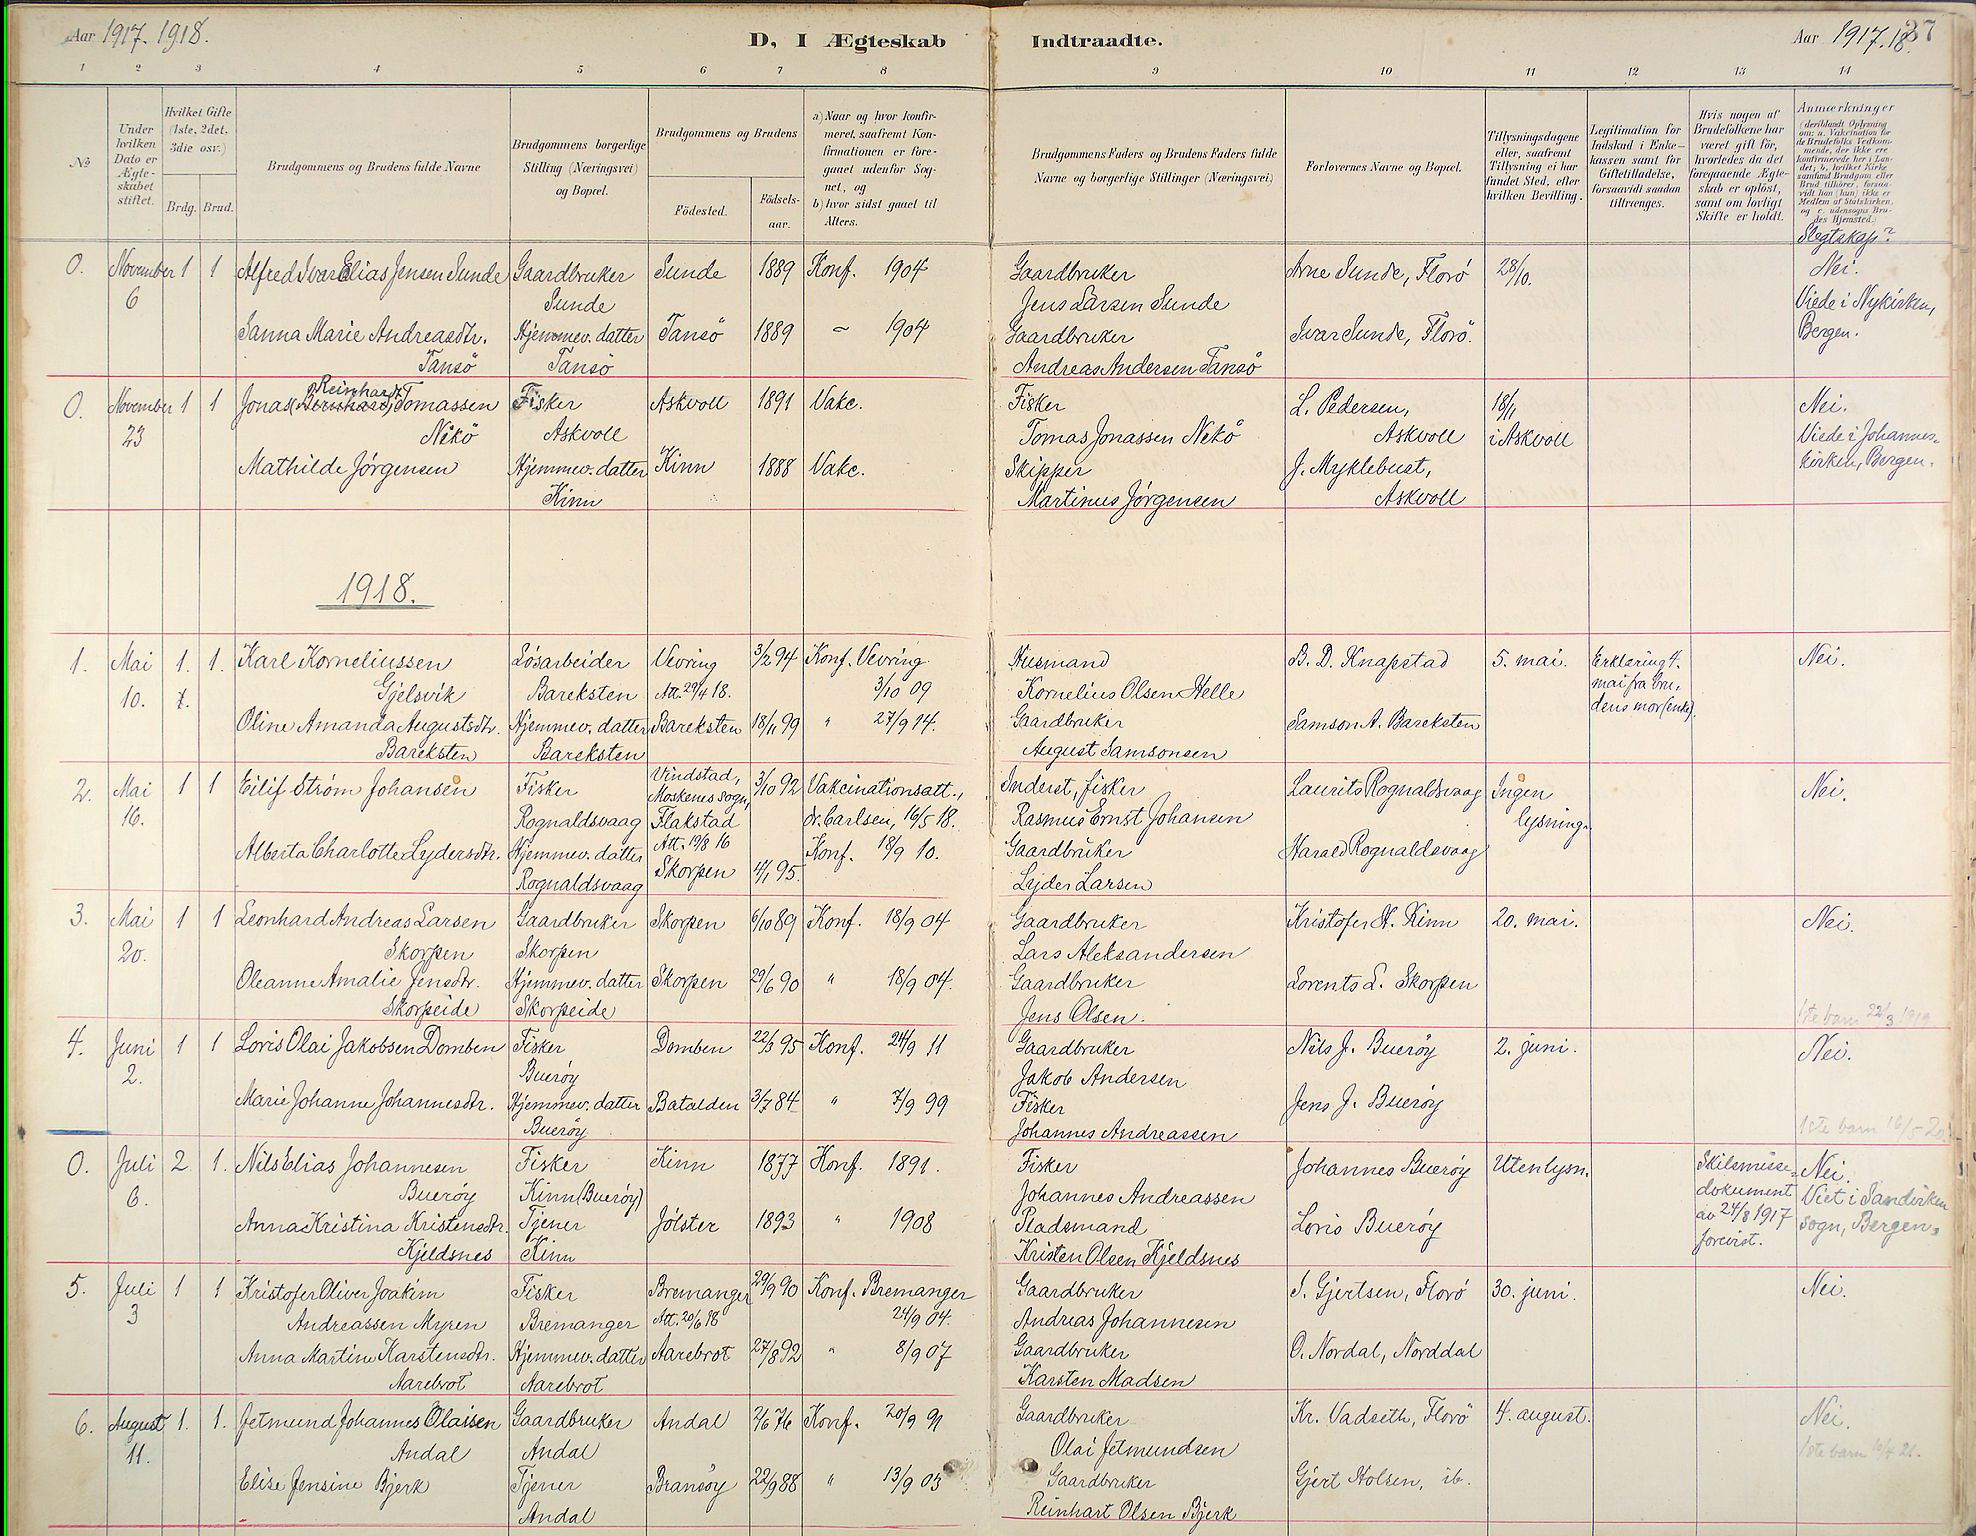 Aar 1917. 1918.
D, I Ægteskab Indtraadte.
Aar 1917. 18.
37
1 2 3 4 5 6 7 8 9 10 11 12 13 14
No.
Under hvilken Dato er Ægteskabet stiftet.
Hvilket Gifte (1ste, 2det, 3die osv.)
Brdg. Brud.
Brudgommens og Brudens fulde Navne
Brudgommens borgerlige Stilling (Næringsvei) og Bopæl.
Brudgommens og Brudens
Födested. Födsels-aar.
a) Naar og hvor konfirmeret, saafremt Konfirmationen er foregaaet udenfor Sognet, og
b) hvor sidst gaaet til Alters.
Brudgommens Faders og Brudens Faders fulde Navne og borgerlige Stillinger (Næringsvei)
Forlovernes Navne og Bopæl.
Tillysningsdagene eller, saafremt Tillysning ei har fundet Sted, efter hvilken Bevilling.
Legitimation for Indskud i Enkekassen samt for Giftetilladelse, forsaavidt saadan tiltrænges.
Hvis nogen af Brudefolkene har været gift för, hvorledes da det foregaaende Ægteskab er oplöst, samt om lovligt Skifte er holdt.
Anmærkninger
(deriblandt Oplysning om: a. Vakcination for de Brudefolks Vedkommende, der ikke ere konfirmerede her i Landet; b. hvilket Kirkesamfund Brudgom eller Brud tilhörer, forsaavidt han (hun) ikke er Medlem af Statskirken, og c. udensogns Brudes Hjemsted.)
Slegtskap?
0. November 1 1 Alfred Ivar Elias Jensen Sunde Gaardbruker Sunde 1889 Konf. 1904 Gaardbruker Arne Sunde, Florö 28/10. Nei.
6 Sunde Jens Larsen Sunde Viede i Nykirken,
Sanna Marie Andreasdtr. Hjemmev. datter Tansö 1889 ~ 1904 Gaardbruker Ivar Sunde, Florö. Bergen.
Tansö Tansö Andreas Andersen Tansö
Reinhardt
0. November 1 1 Jonas (Bernhard) Tomassen Fisker Askvoll 1891 Vakc. Fisker L. Pedersen, 18/11 Nei.
23 Nekö Askvoll Tomas Jonassen Nekö Askvoll i Askvoll Viede i Johannes-
Mathilde Jörgensen Hjemmev. datter Kinn 1888 Vakc. Skipper J. Myklebust, kirken, Bergen.
Kinn Martinus Jörgensen Askvoll
1918.
1. Mai 1. 1. Karl Korneliussen Lösarbeider Vevring 3/2 94 Konf. Vevring Husmand B. D. Knapstad 5. mai. Erklæring 4. Nei.
10. Gjelsvik Bareksten Att. 29/4 18. 3/10 09 Kornelius Olsen Helle mai fra bru-
Oline Amanda Augustsdtr. Hjemmev. datter Bareksten 18/11 99 " 27/9 14. Gaardbruker Samson A. Bareksten dens mor (enke).
Bareksten Bareksten August Samsonsen
2. Mai 1 1 Eilif Strøm Johansen Fisker Vindstad, 3/10 92 Vakcinationsatt., Inderst, fisker Laurits Rognaldsvaag Ingen Nei.
Moskenes sogn,
16. Rognaldsvaag Flakstad dr. Carlsen, 16/5 18. Rasmus Ernst Johansen lysning.
Att. 19/8 16
Alberta Charlotte Lydersdtr. Hjemmev. datter Konf. 18/9 10. Gaardbruker Harald Rognaldsvaag
Rognaldsvaag Skorpen 14/1 95. Lyder Larsen
3. Mai 1 1 Leonhard Andreas Larsen Gaardbruker Skorpen 6/10 89 Konf. 18/9 04 Gaardbruker Kristofer H. Kinn 20. mai. Nei.
20. Skorpen Skorpen Lars Aleksandersen
Oleanne Amalie Jensdtr. Hjemmev. datter Skorpen 29/6 90 " 18/9 04. Gaardbruker Lorents L. Skorpen
Skorpeide Skorpeide Jens Olsen. 1ste barn 22/3 1919
4. Juni 1 1 Loris Olai Jakobsen Domben Fisker Domben 22/3 95 Konf. 24/9 11 Gaardbruker Nils J. Bueröy 2. juni. Nei.
2. Bueröy Jakob Andersen
Marie Johanne Johannesdtr. Hjemmev. datter Batalden 3/7 84 " 7/9 99 Fisker Jens J. Bueröy
Bueröy Johannes Andreassen 1ste barn 16/5 20.
0. Juli 2 1. Nils Elias Johannesen Fisker Kinn 1877 Konf. 1891. Fisker Johannes Bueröy Uten lysn. Skilsmisse- Nei.
6. Bueröy Kinn (Bueröy) Johannes Andreassen dokument Viet i Sandviken
Anna Kristina Kristensdtr. Tjener Jölster 1893 " 1908 Pladsmand Loris Bueröy av 24/8 1917 sogn, Bergen.
Kjeldsnes Kinn Kristen Olsen Kjeldsnes forevist.
5. Juli 1 1 Kristofer Oliver Joakim Fisker Bremanger 29/9 90 Konf. Bremanger Gaardbruker S. Gjertsen, Florö 30. juni. Nei.
3 Andreassen Myren Bremanger Att. 20/6 18 24/9 04. Andreas Johannesen
Anna Martine Karstensdtr. Hjemmev. datter Aarebrot 27/8 92 " 8/9 07 Gaardbruker O. Nordal, Norddal
Aarebrot Aarebrot Karsten Madsen
6. August 1. 1. Jetmund Johannes Olaisen Gaardbruker Andal 2/6 76 Konf. 20/9 91 Gaardbruker Kr. Vadseth, Florö 4. august. Nei.
11. Andal Andal Olai Jetmundsen 1ste barn 10/4 21.
Elise Jensine Bjerk Tjener Bransöy 22/9 88 " 13/9 03 Gaardbruker Gjert Holsen, ib.
Andal Reinhart Olsen Bjerk